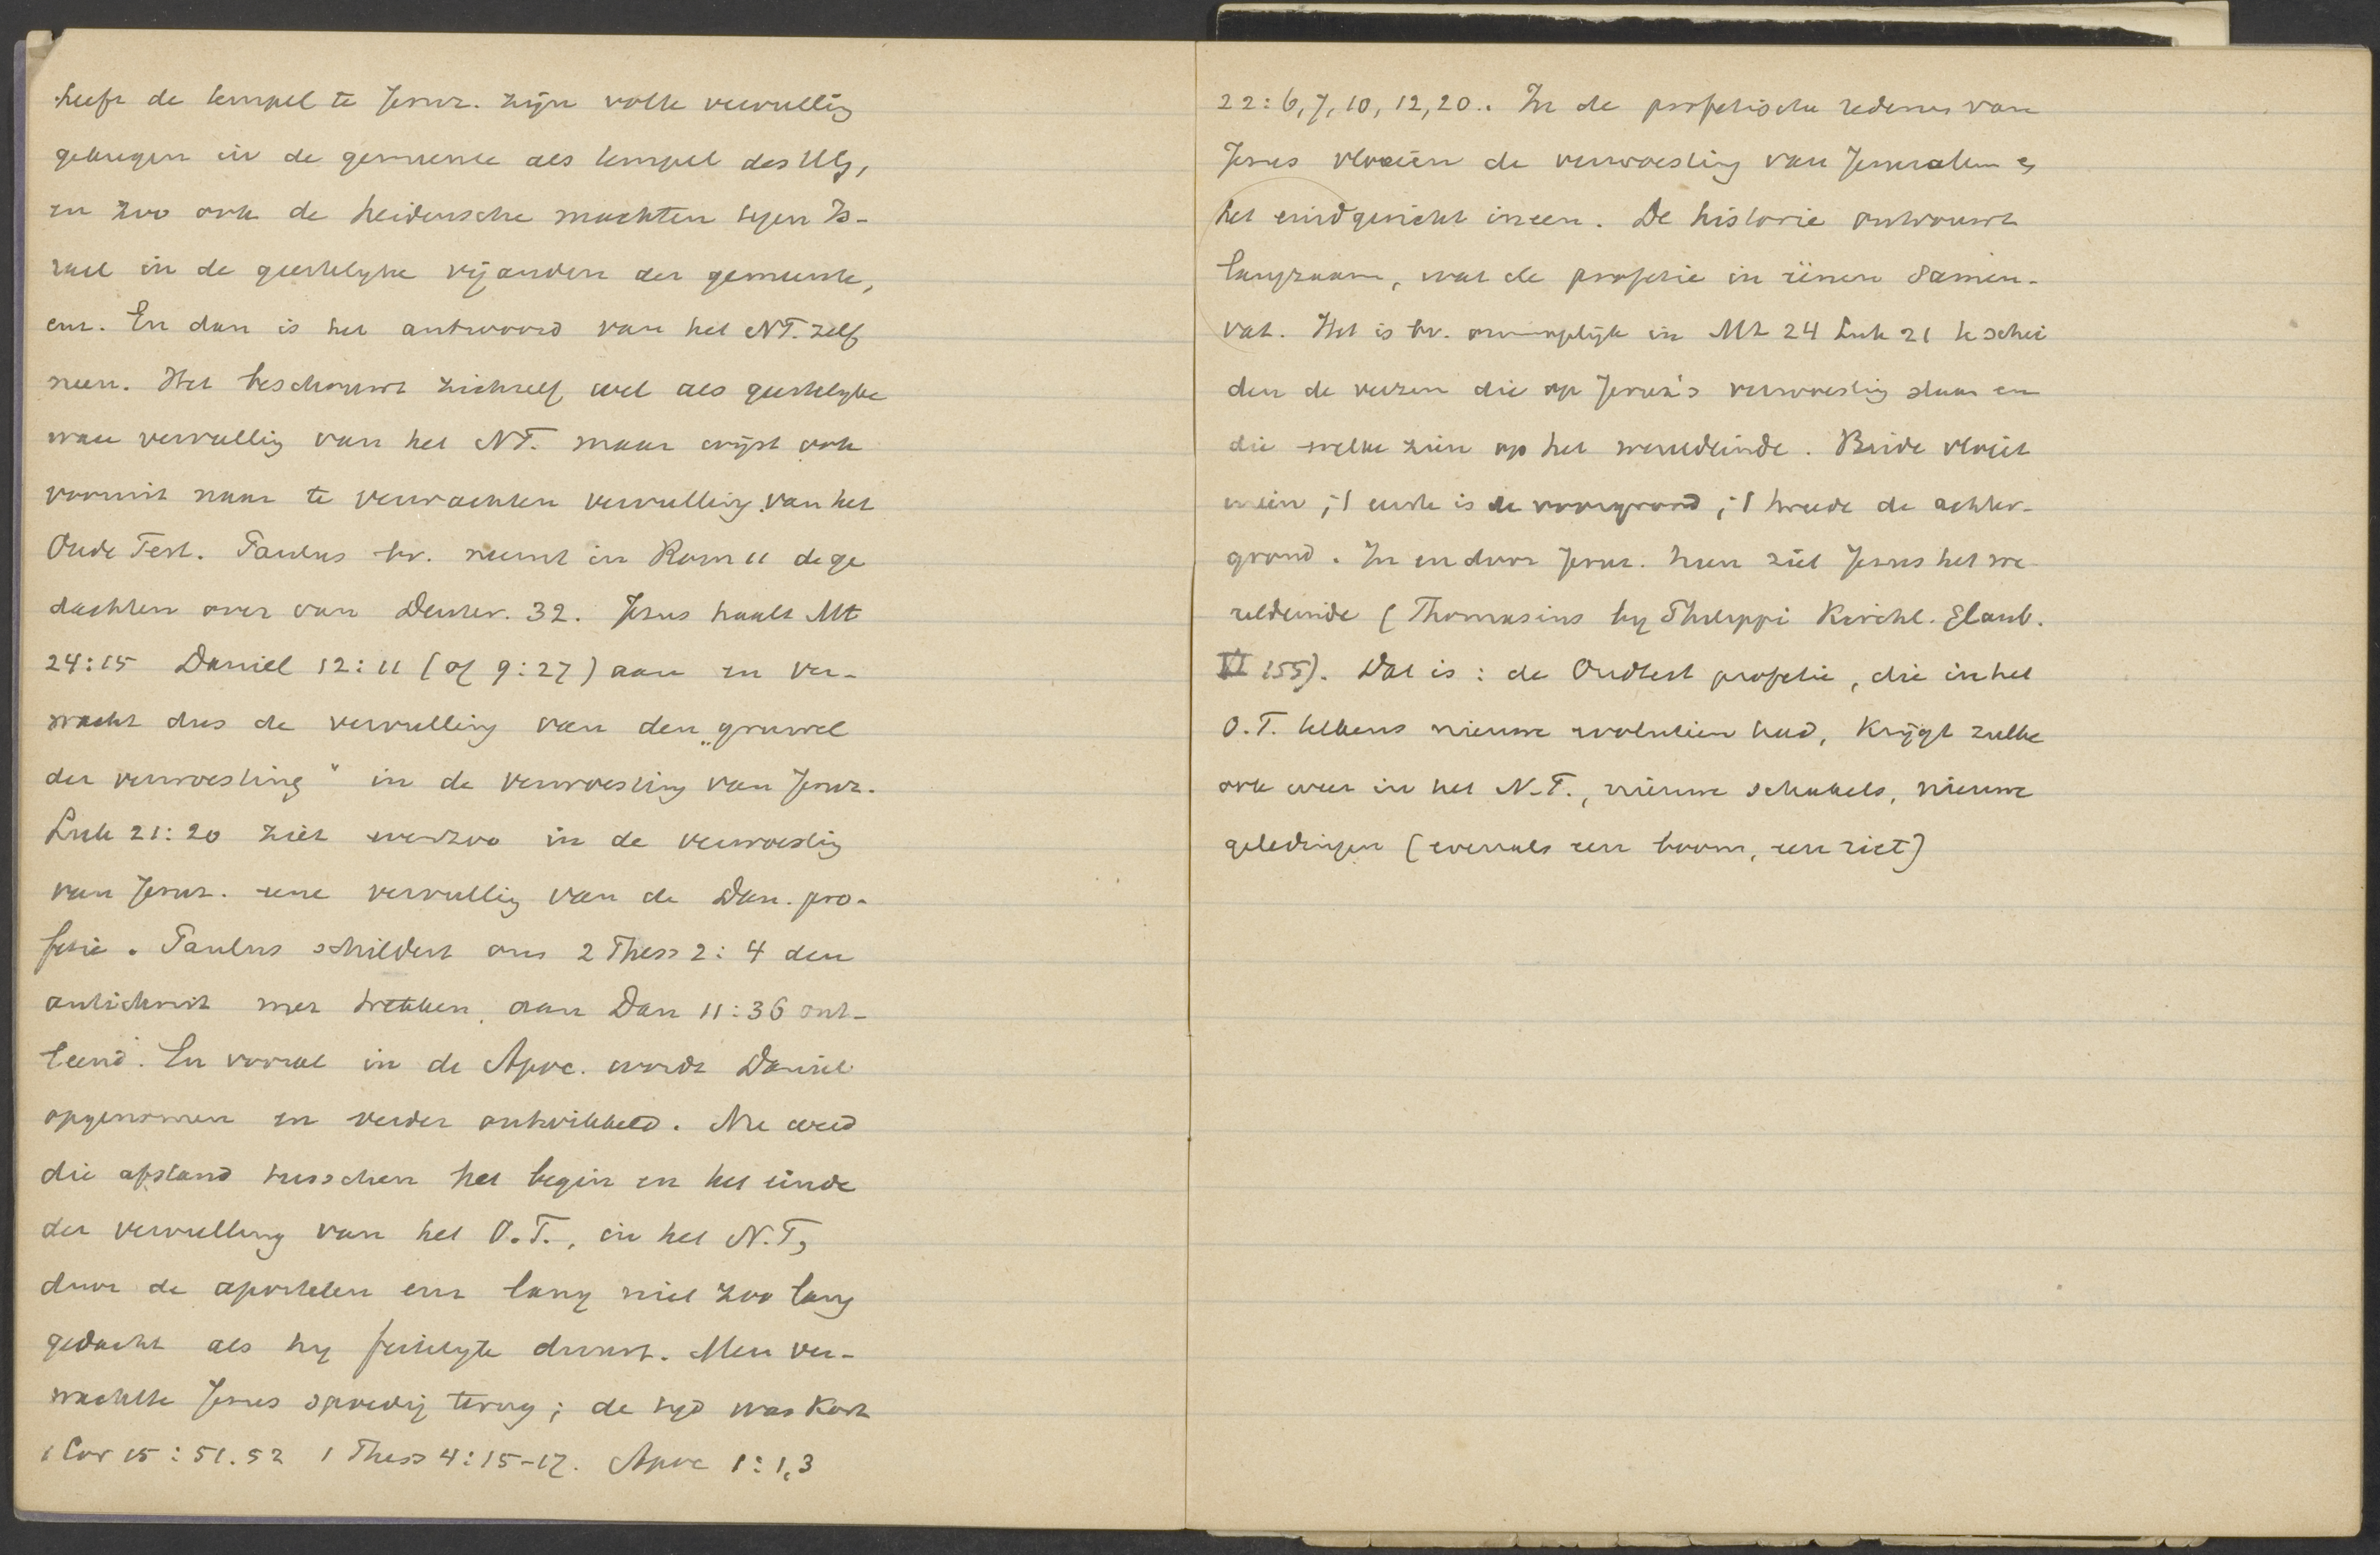 heeft de tempel te Jeruz. zijn volle vervulling
gekregen in de gemeente als tempel des HG,
en zoo ook de heidensche machten tegen Is-
rael in de geestelyke vijanden der gemeente,
enz. En dan is het antwoord van het NT. zelf
neen. Het beschouwt zichzelf wel als geestelyke
ware vervulling van het NT. maar wijst ook
vooruit naar te verwachten vervulling van het
Oude Test. Paulus bv. neemt in Rom 11 de ge
dachten over van Deuter. 32. Jezus haalt Mt
24:15 Daniel 12:11 (of 9:27) aan en ver-
wacht dus de vervulling van den „gruwel
der verwoesting" in de verwoesting van Jeruz.
Luk 21:20 ziet evenzoo in de verwoesting
van Jeruz. eene vervulling van de Dan. pro-
fetie. Paulus schildert ons 2 Thess 2:4 den
antichrist met trekken, aan Dan 11:36 ont-
leend. En vooral in de Apoc. wordt Daniel
opgenomen en verder ontwikkeld. Nu werd
die afstand tusschen het begin en het einde
der vervulling van het O.T., in het N.T,
door de apostelen enz lang niet zoo lang
gedacht als hy feitelyk duurt. Men ver-
wachtte Jezus spoedig terug; de tyd was kort
1 Cor 15:51.52 1 Thess 4:15-17. Apoc 1:1,3
22:6,7,10,12,20.. In de profetische redenen van
Jezus vloeien de verwoesting van Jeruzalem en
het eindgericht ineen. De historie ontvouwt
langzaam, wat de profetie in éénen samen-
vat. Het is bv. onmogelijk in Mt 24 Luk 21 te schei
den de verzen die op Jeruz's verwoesting slaan en
die welke zien op het wereldeinde. Beide vloeit
ineen; 't eerste is de voorgrond; 't tweede de achter-
grond. In en door Jeruz. heen ziet Jezus het we
reldeinde (Thomasius by Philippi Kirchl. Glaub.
VI 155). Dat is: de Oudtest profetie, die in het
O.T. telkens nieuwe evolutien had, krijgt zulke
ook weer in het N.T., nieuwe schakels, nieuwe
geledingen (evenals een boom, een riet)